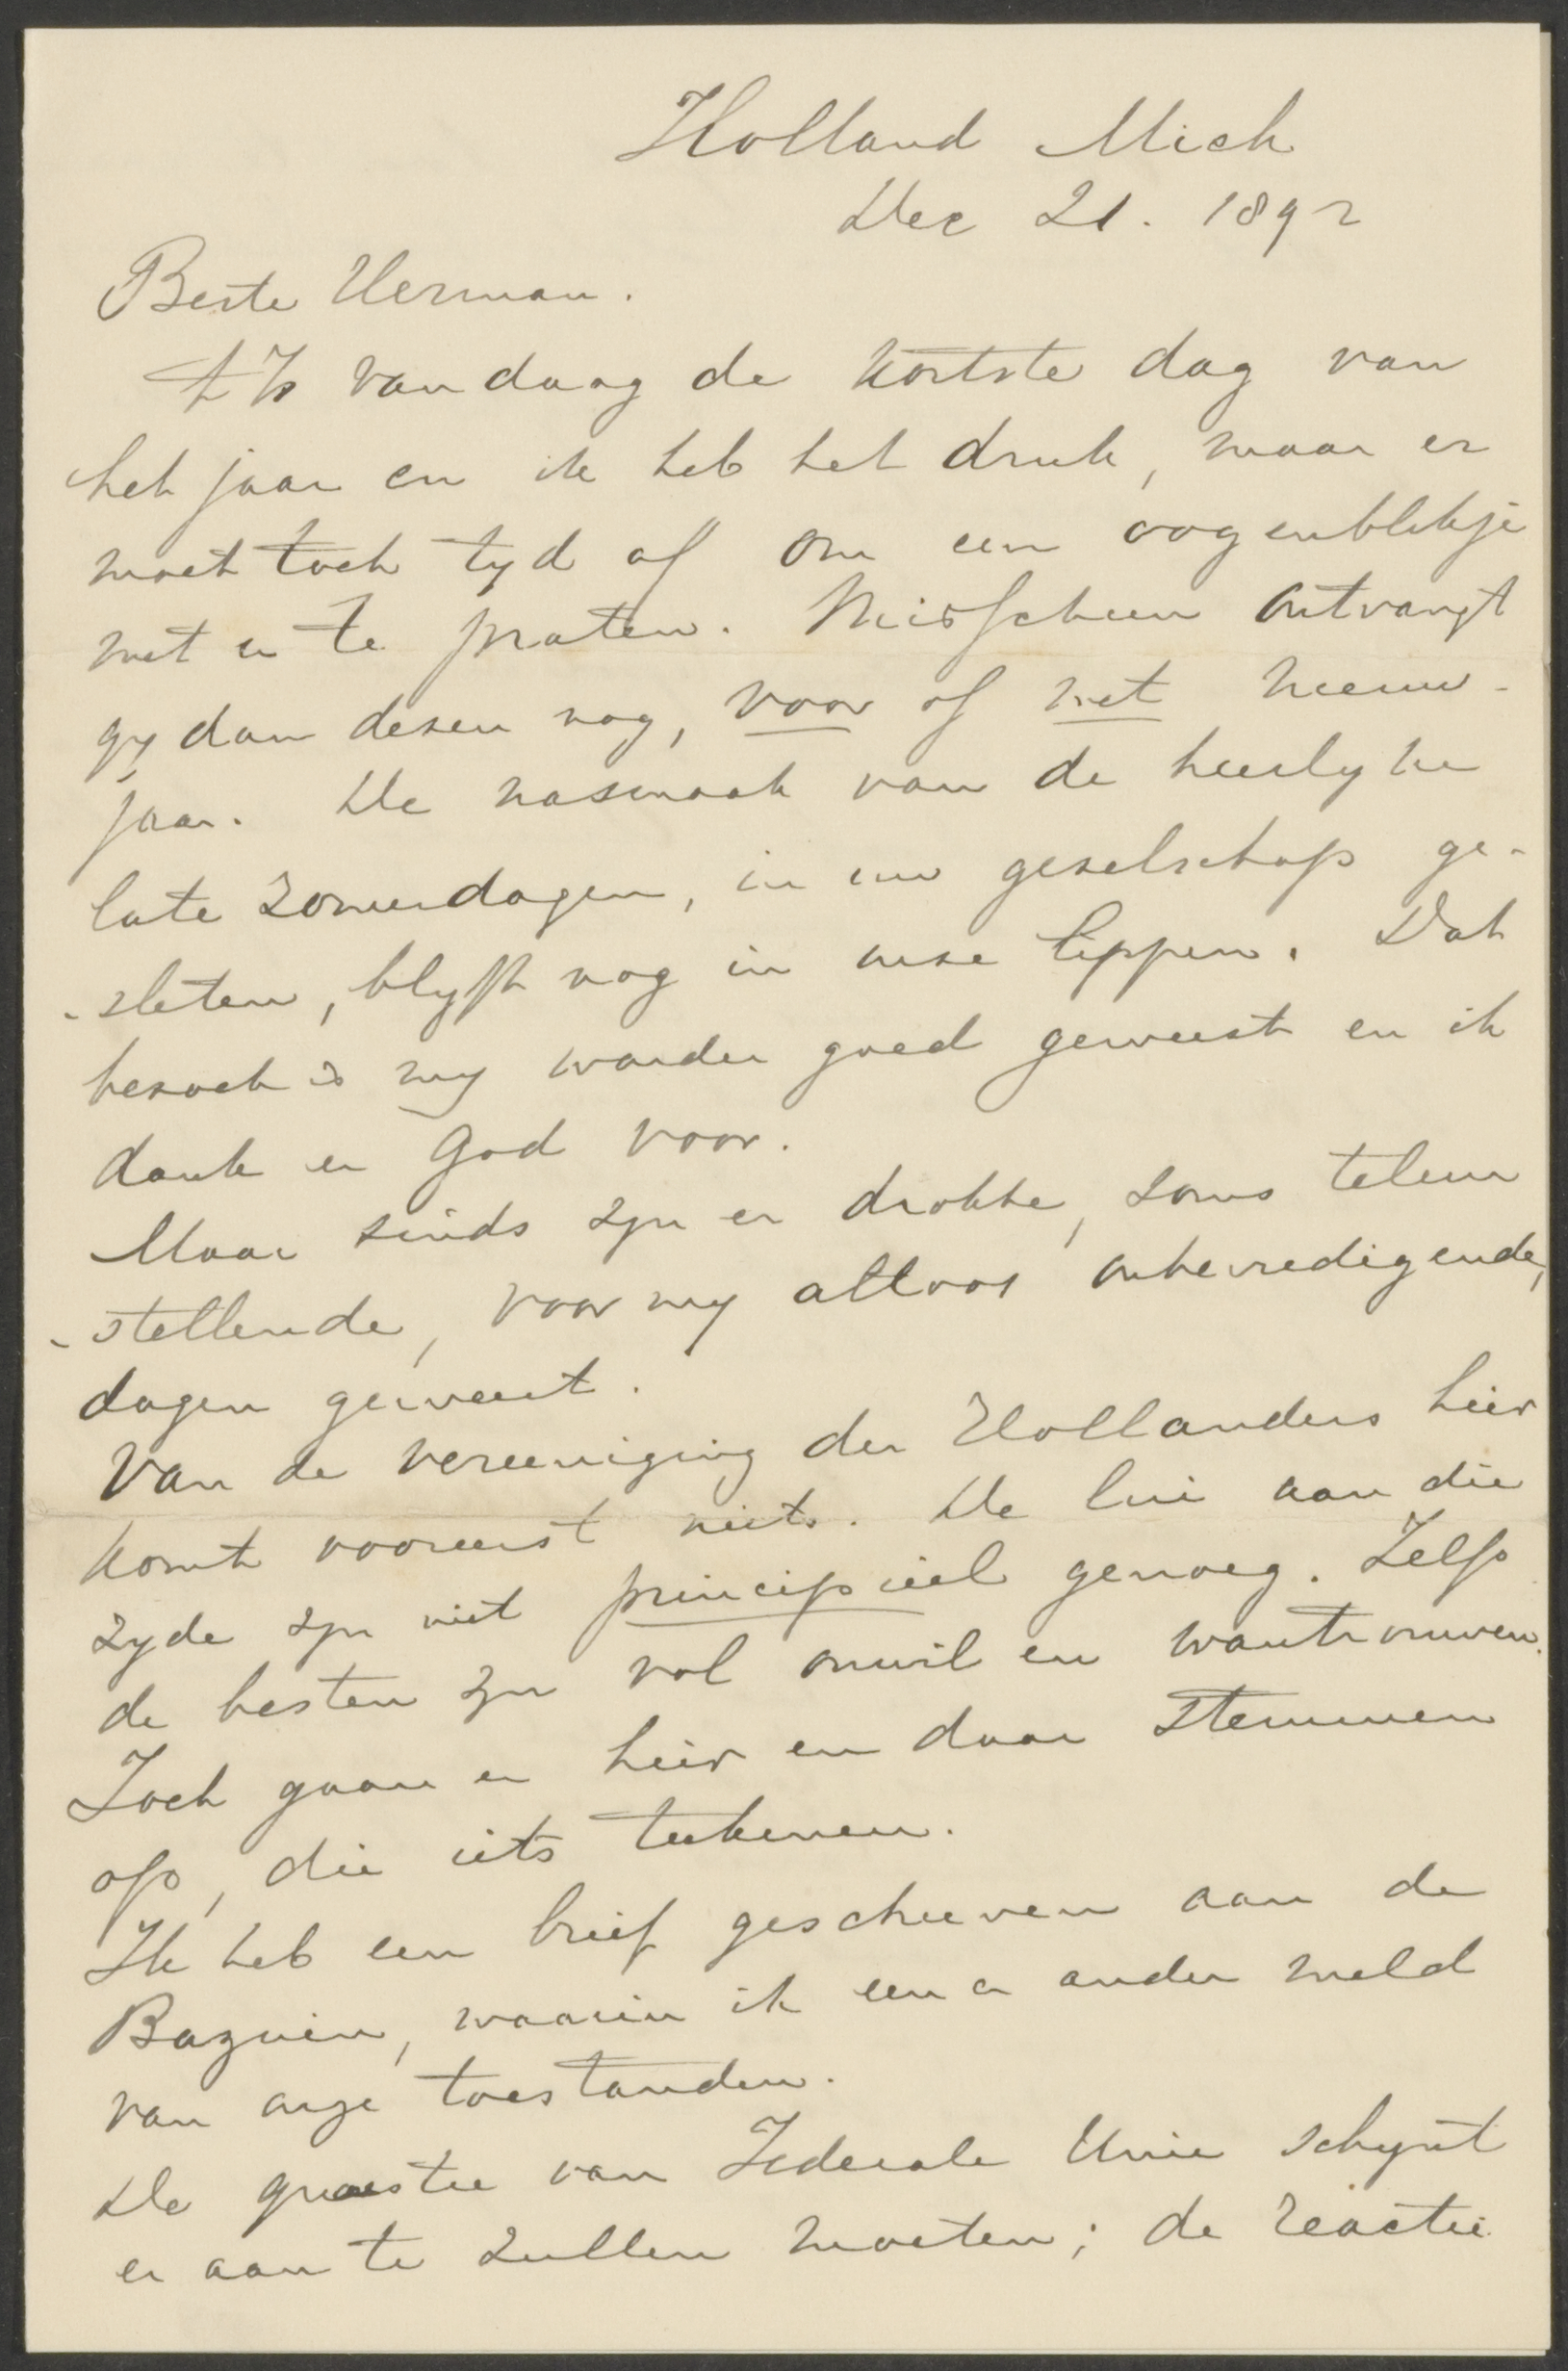 Holland Mich
Dec 21. 1892
Beste Herman.
't Is vandaag de kortste dag van
het jaar en ik heb het druk, maar er
moet toch tyd af om een oogenblikje
met u te praten. Misschien ontvangt
gy dan dezen nog, voor of met nieuw-
jaar. De nasmaak van de heerlyke
late zomerdagen, in uw gezelschap ge-
-sleten, blyft nog in onze lippen. Dat
bezoek is my wonder goed geweest en ik
dank er God voor.
Maar sinds zyn er drokke, soms teleur
-stellende, voor my altoos onbevredigende,
dagen geweest.
Van de vereeniging der Hollanders hier
komt vooreerst niets. De lui aan die
zyde zyn niet principieel genoeg. Zelfs
de besten zyn vol onwil en wantrouwen.
Toch gaan er hier en daar stemmen
op, die iets teekenen.
Ik heb een brief geschreven aan de
Bazuin, waarin ik een en ander meld
van onze toestanden.
De quaestie van Federale Unie schynt
er aan te zullen moeten; de reactie